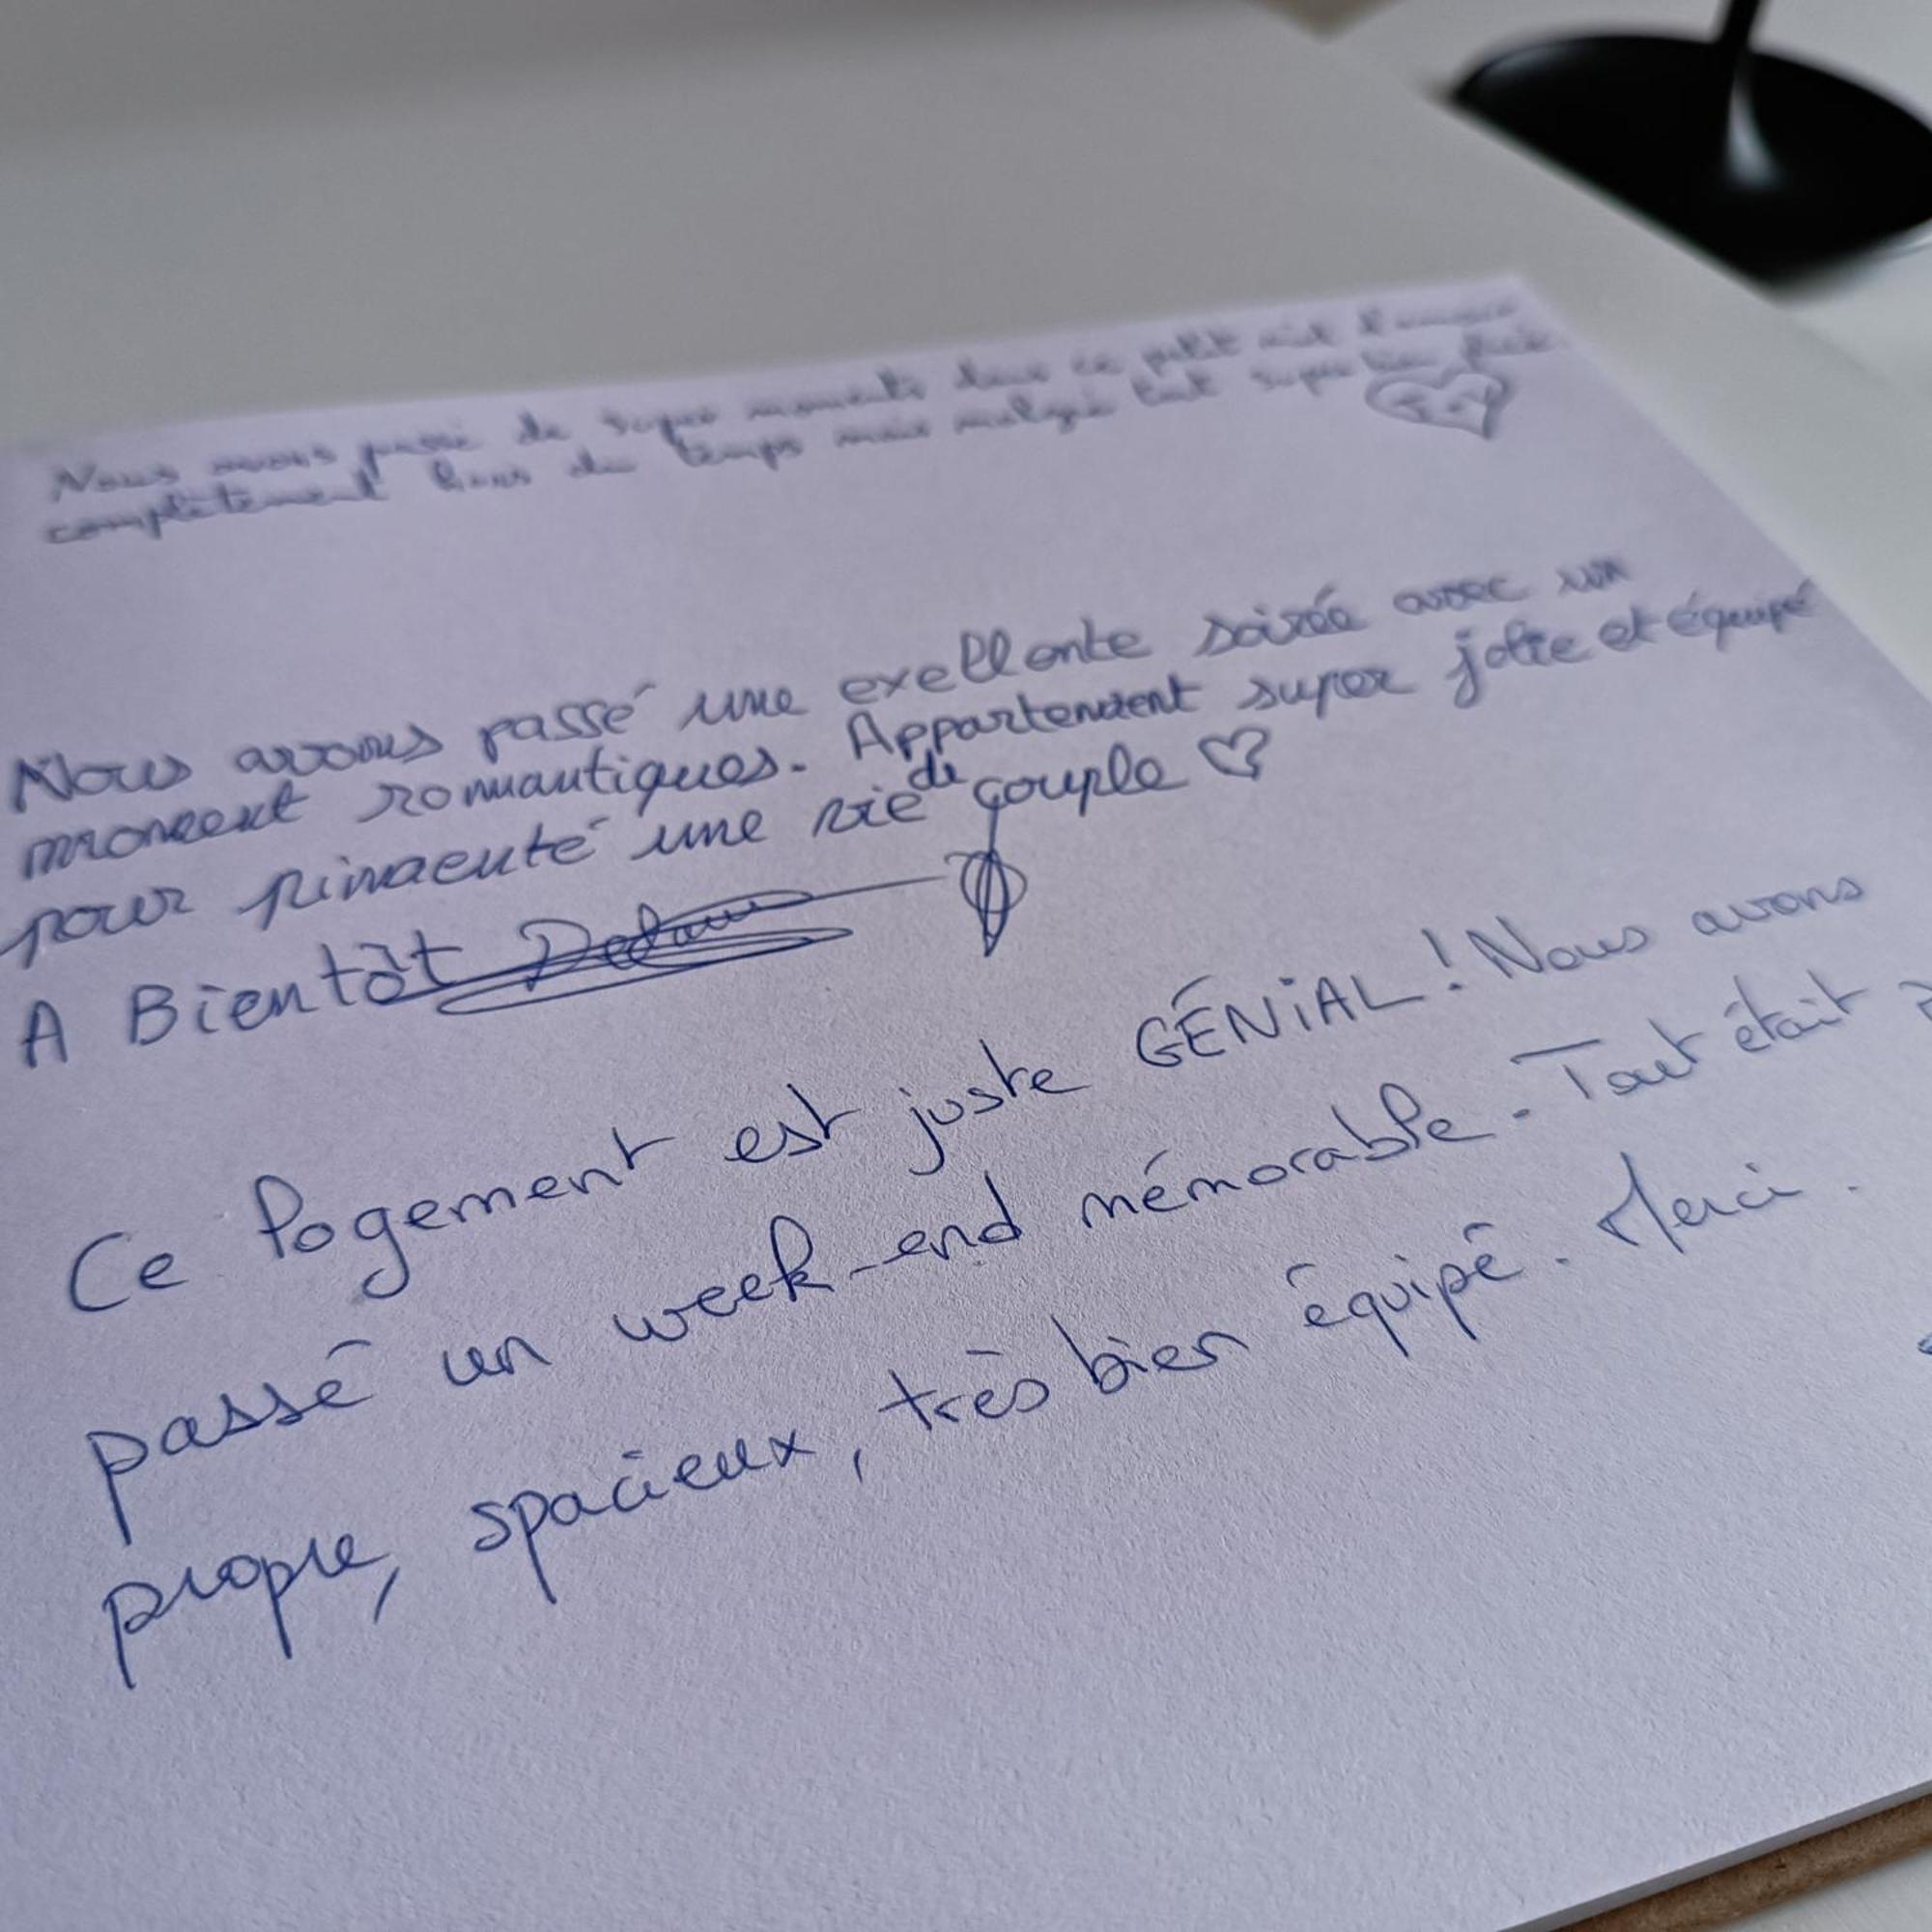 Nous avons passé de super moments dans ce petit nid d'amour
complètement hors du temps mais malgré tout super bien placé.
Nous avons passé une exellente soirée avec un
moment romantiques. Appartement super jolie et équipé
pour pimenté une vie de couple ♡
A Bientôt
Ce logement est juste GÉNiAL! Nous avons
passé un week-end mémorable. Tout était
propre, spacieux, très bien équipé. Merci.